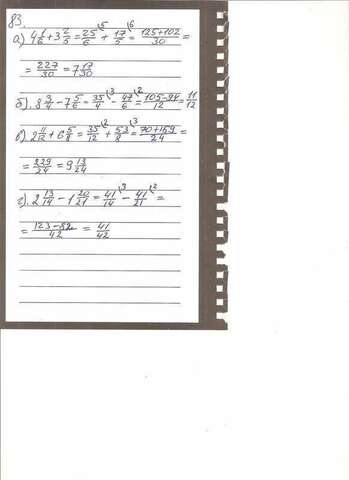 83.
а) 4 1/6 + 3 2/5 = 25/6 \5 + 17/5 \6 = 125+102/30 =
= 227/30 = 7 17/30
б). 8 3/4 - 7 5/6 = 35/4 \3 - 47/6 \2 = 105-94/12 = 11/12
в). 2 11/12 + 6 5/8 = 35/12 \2 + 53/8 \3 = 70+159/24 =
= 229/24 = 9 13/24
г). 2 13/14 - 1 20/21 = 41/14 \3 - 41/21 \2 =
= 123-82/42 = 41/42